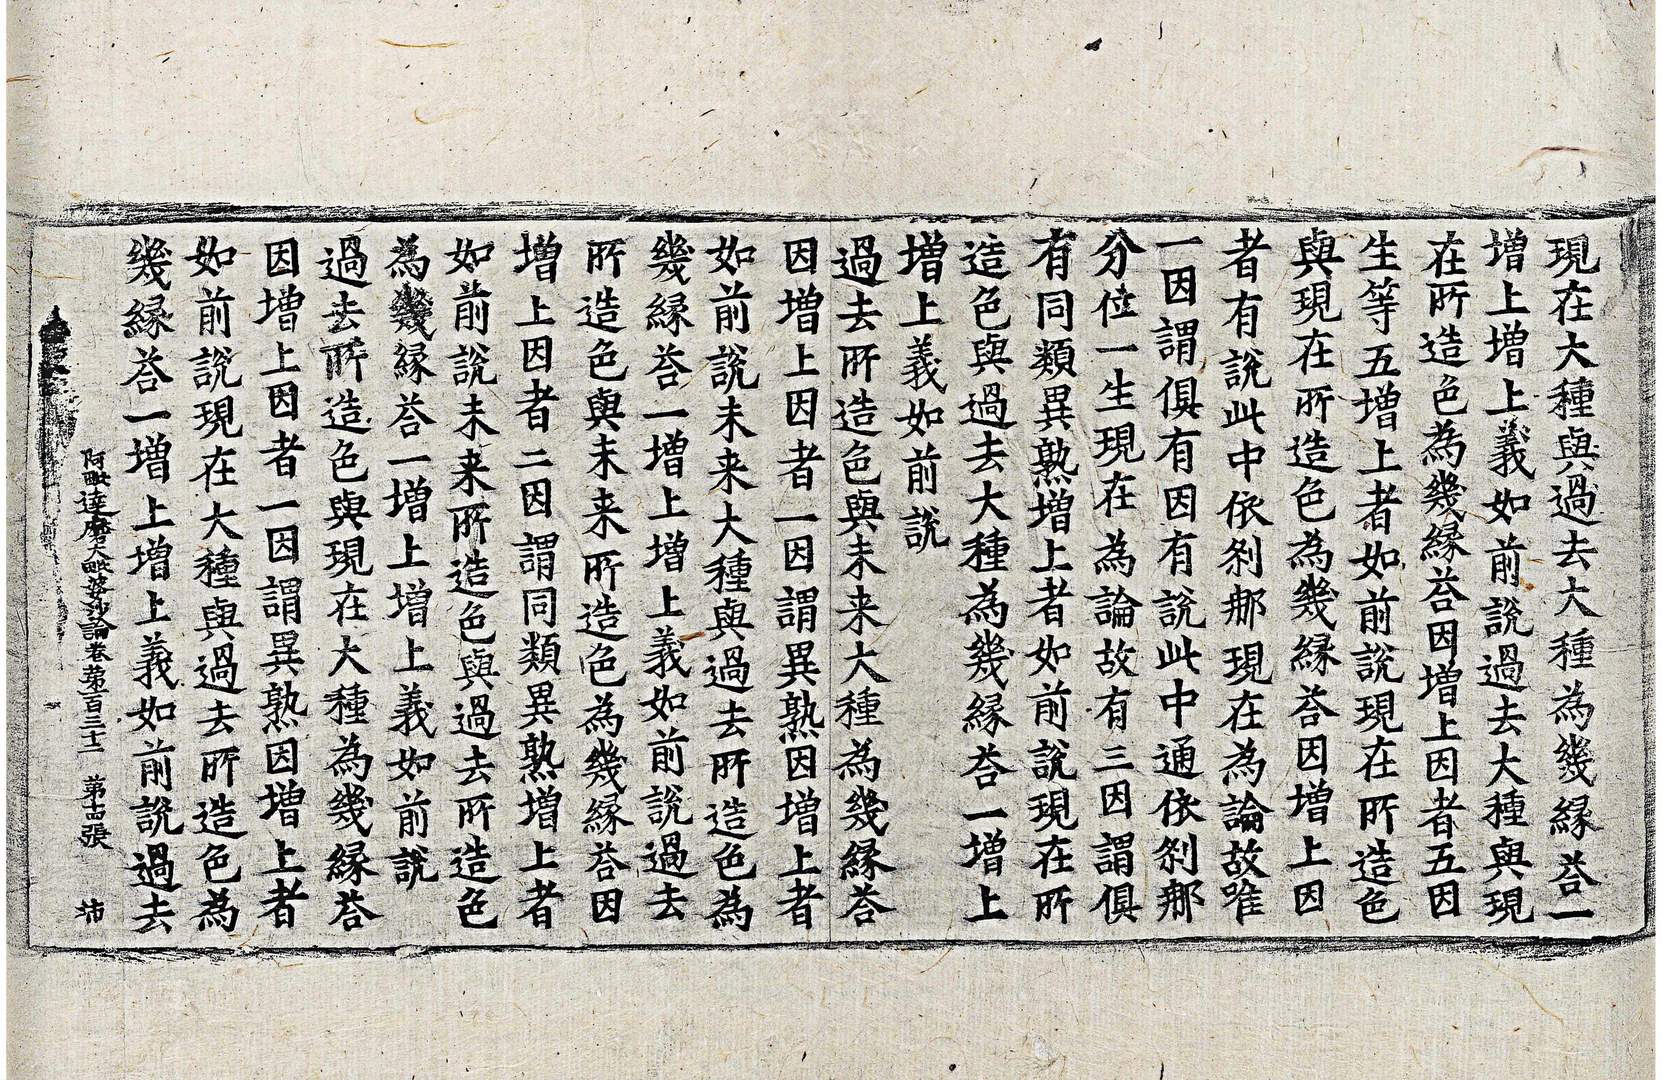 現在大種與過去大種為幾緣荅一
增上增上義如前說過去大種與現
在所造色為幾緣荅因增上因者五因
生等五增上者如前說現在所造色
與現在所造色為幾緣荅因增上因
者有說此中依剎那現在為論故唯
一因謂俱有因有說此中通依剎那
分位一生現在為論故有三因謂俱
有同類異熟增上者如前說現在所
造色與過去大種為幾緣荅一增上
增上義如前說
過去所造色與未來大種為幾緣荅
因增上因者一因謂異熟因增上者
如前說未來大種與過去所造色為
幾緣荅一增上增上義如前說過去
所造色與未來所造色為幾緣荅因
增上因者二因謂同類異熟增上者
如前說未來所造色與過去所造色
為幾緣荅一增上增上義如前說
過去所造色與現在大種為幾緣荅
因增上因者一因謂異熟因增上者
如前說現在大種與過去所造色為
幾緣荅一增上增上義如前說過去
阿毗達磨大毗婆沙論卷第百三十二 第十四張 沛